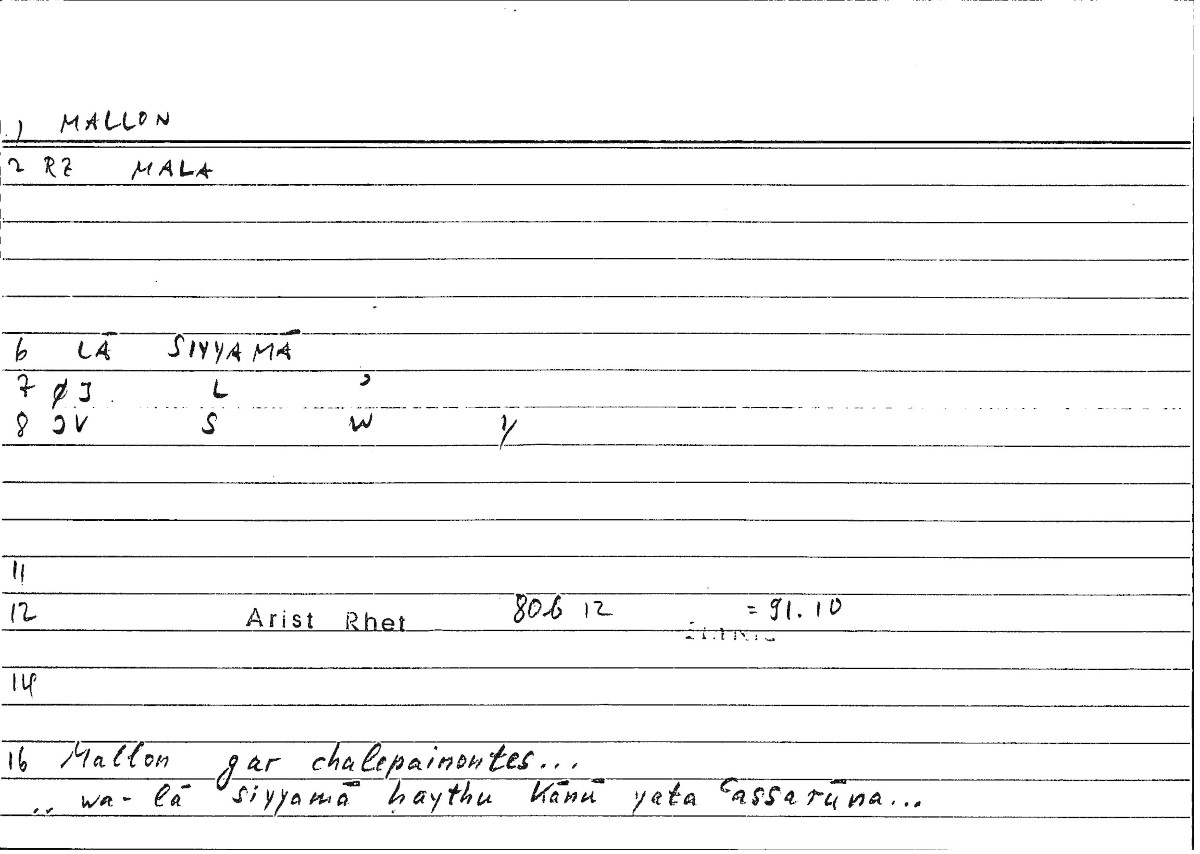 1) MALLON
2 RZ MALA
6 LĀ SIYYAMĀ
7 L ʾ
8 S W Y
11
12 Arist Rhet 80b 12 = 91.10
14
16 Mallon gar chalepainontes...
.. wa-lā siyyamā ḥaythu kānū yataʿassarūna...